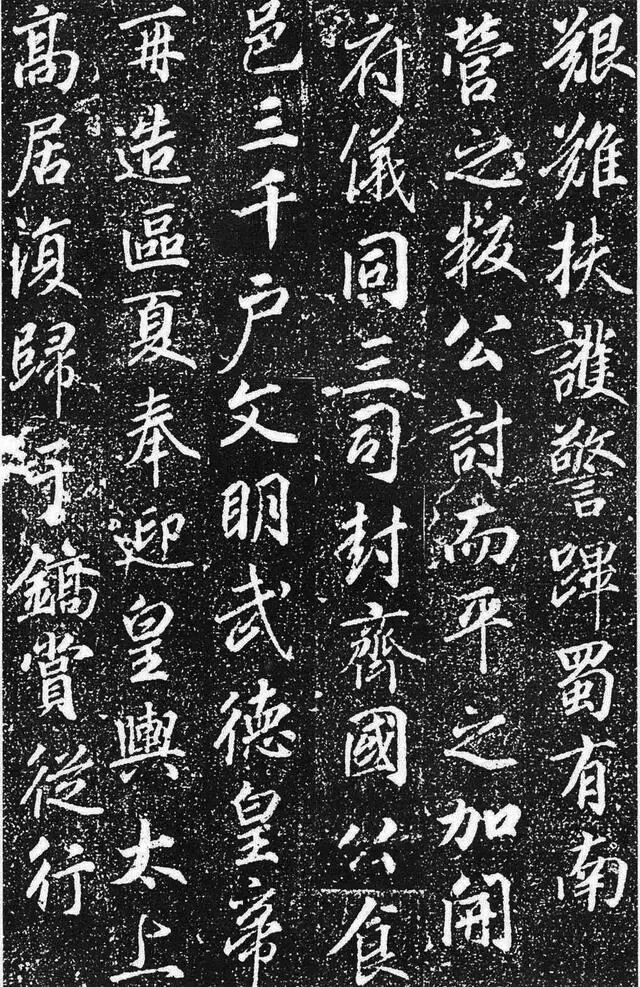 艱難扶護警蹕蜀有南
營之叛公討而平之加開
府儀同三司封齊國公食
邑三千户文明武德皇帝
再造區夏奉迎皇輿太上
髙居復歸于鎬賞從行